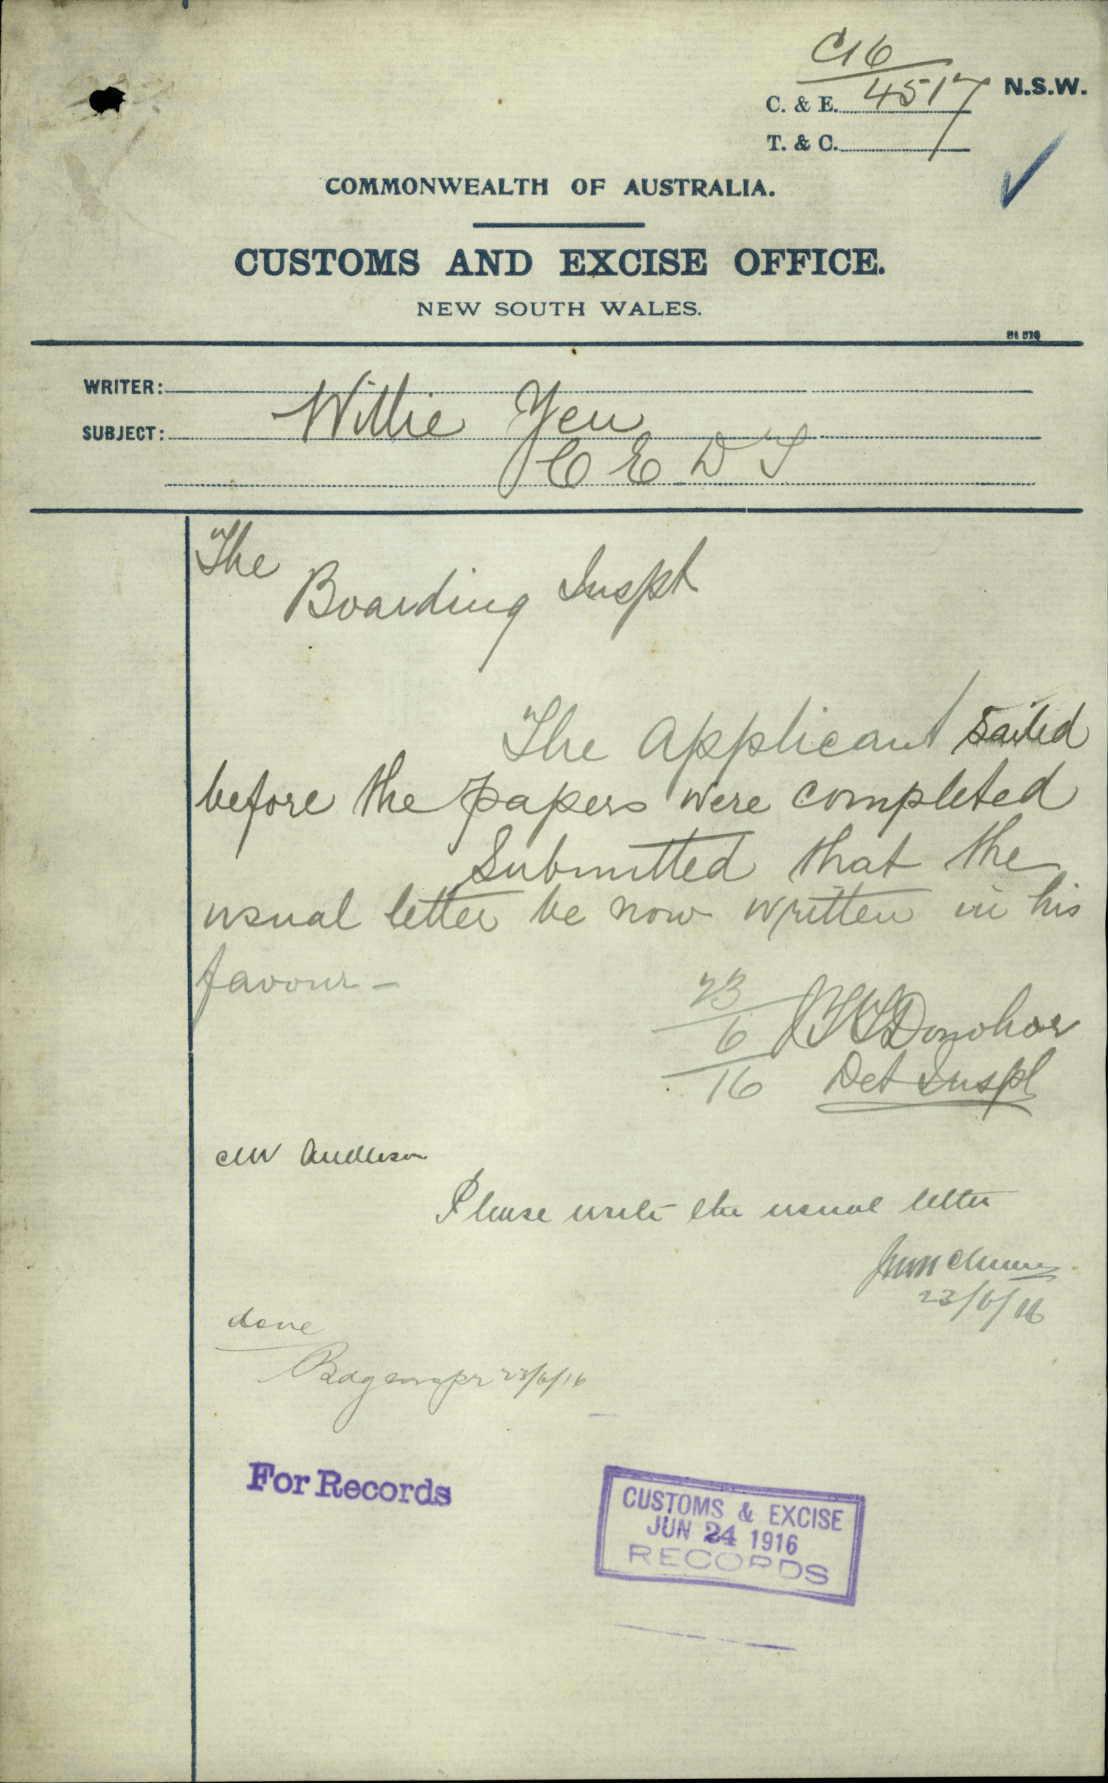 C16
4517
C. & E.
N.S.W.
T. & C.
COMMONWEALTH OF AUSTRALIA.
CUSTOMS AND EXCISE OFFICE.
NEW SOUTH WALES.
WRITER:
SUBJECT:
Willie Yen
C E D T
The
Boarding Inspt
The applicant sailed
before the papers were completed
Submitted that the
usual letter be now written in his
favour -
23
6
16
Donohoe
Det Inspt
Mr Anderson
Please write the usual letter
23/6/16
done
23/6/16
For Records
CUSTOMS & EXCISE
JUN 24 1916
RECORDS